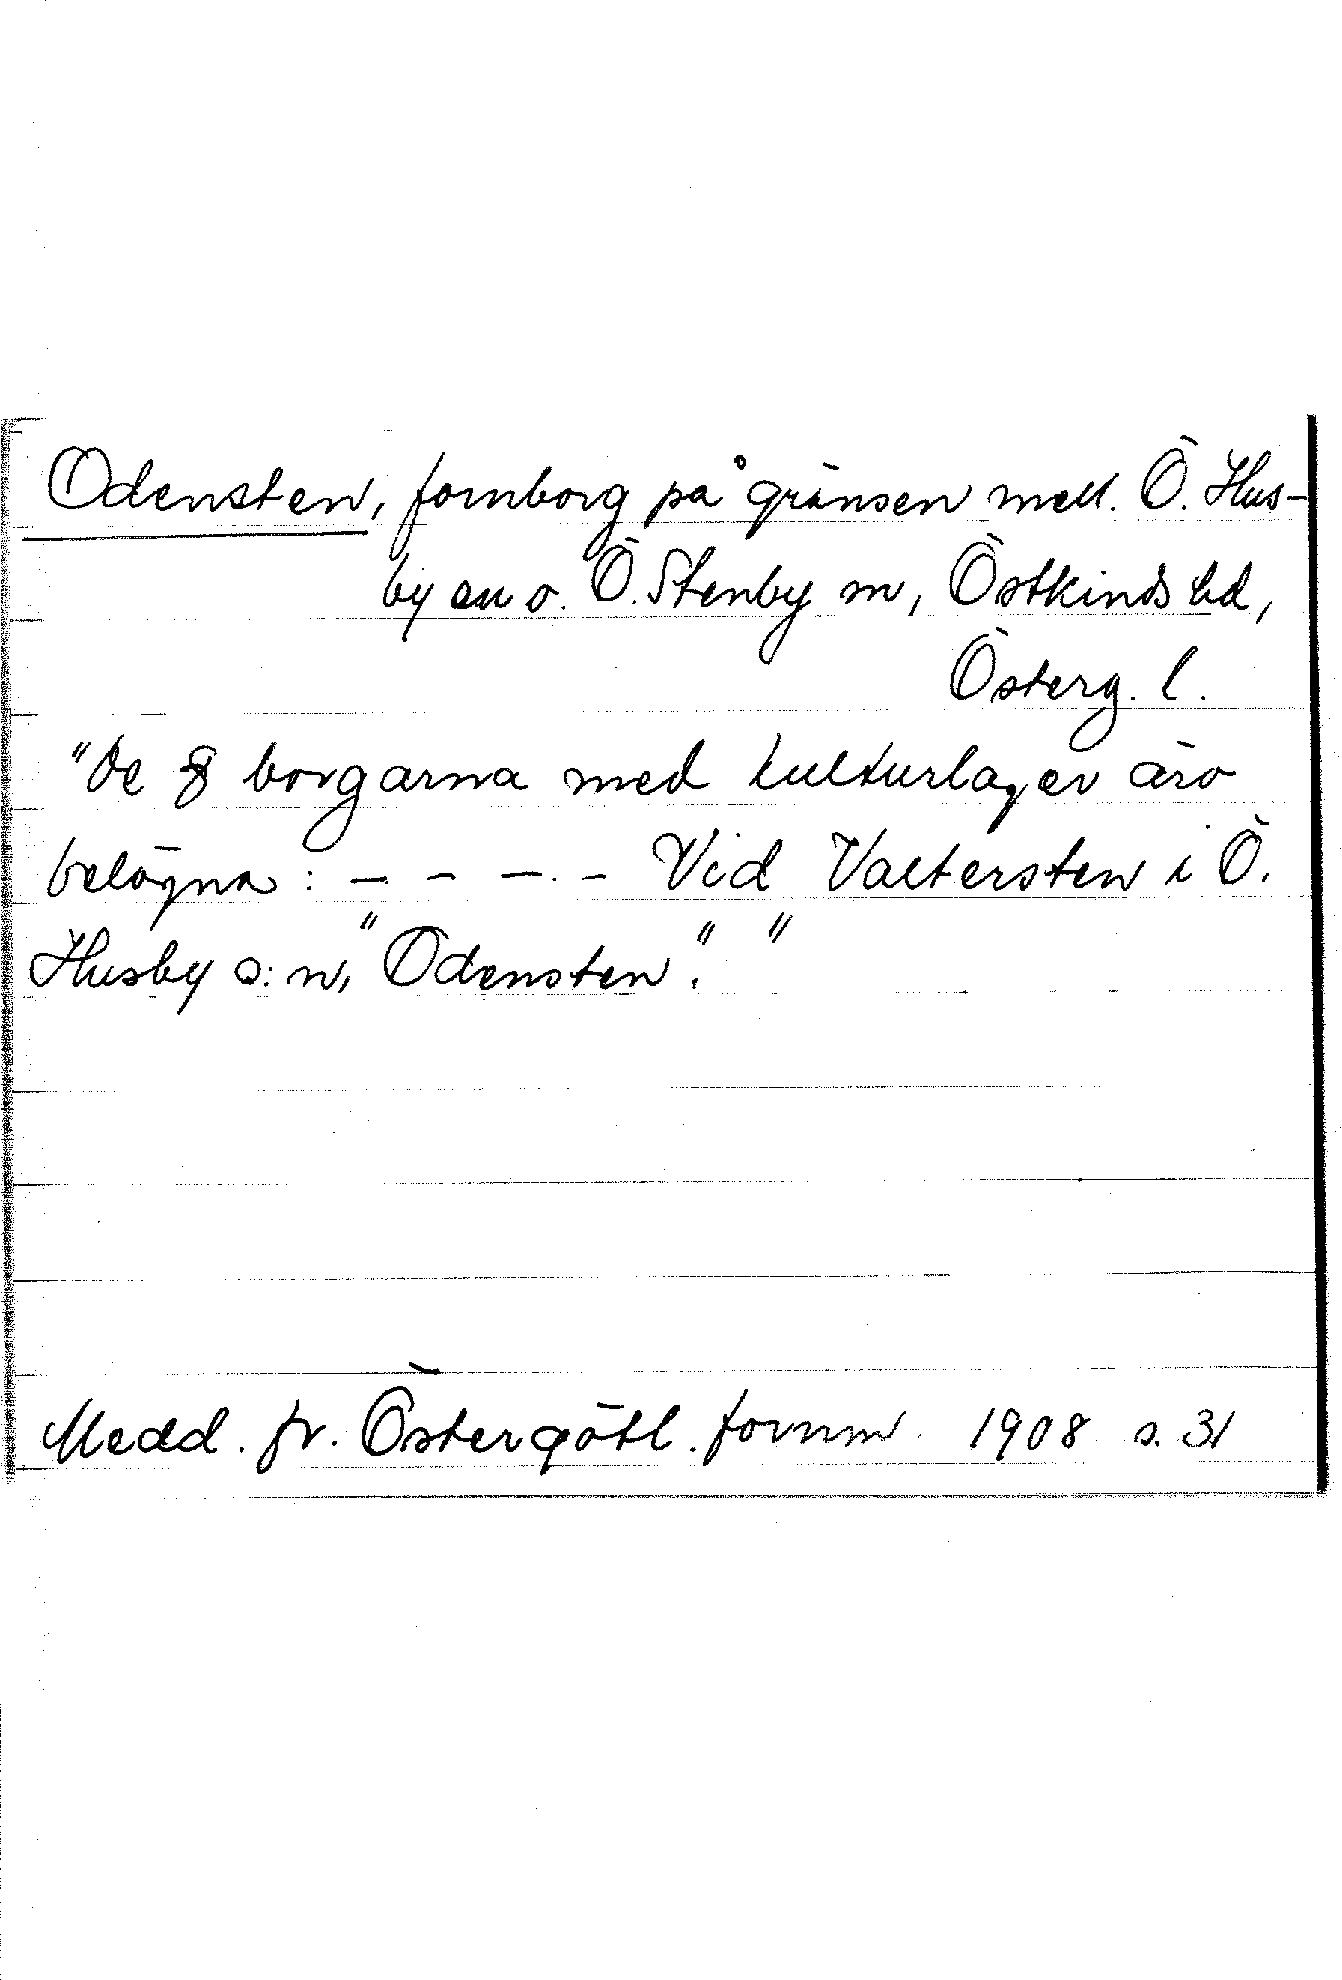 Odensten, fornborg på gränsen mell. Ö. Hus-
by sn o. Ö. Stenby sn, Östkinds hd,
Österg. l.
"De 8 borgarna med kulturlager äro
belägna: – – – – Vid Valtersten i Ö.
Husby s:n, "Odensten"."
Medd. fr. Östergötl. fornm. 1908 s. 31